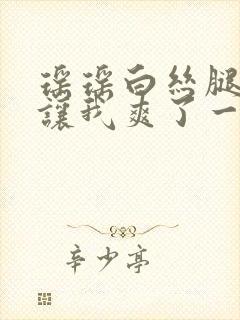 瑶瑶白丝腿
讓我爽了一
辛少亭